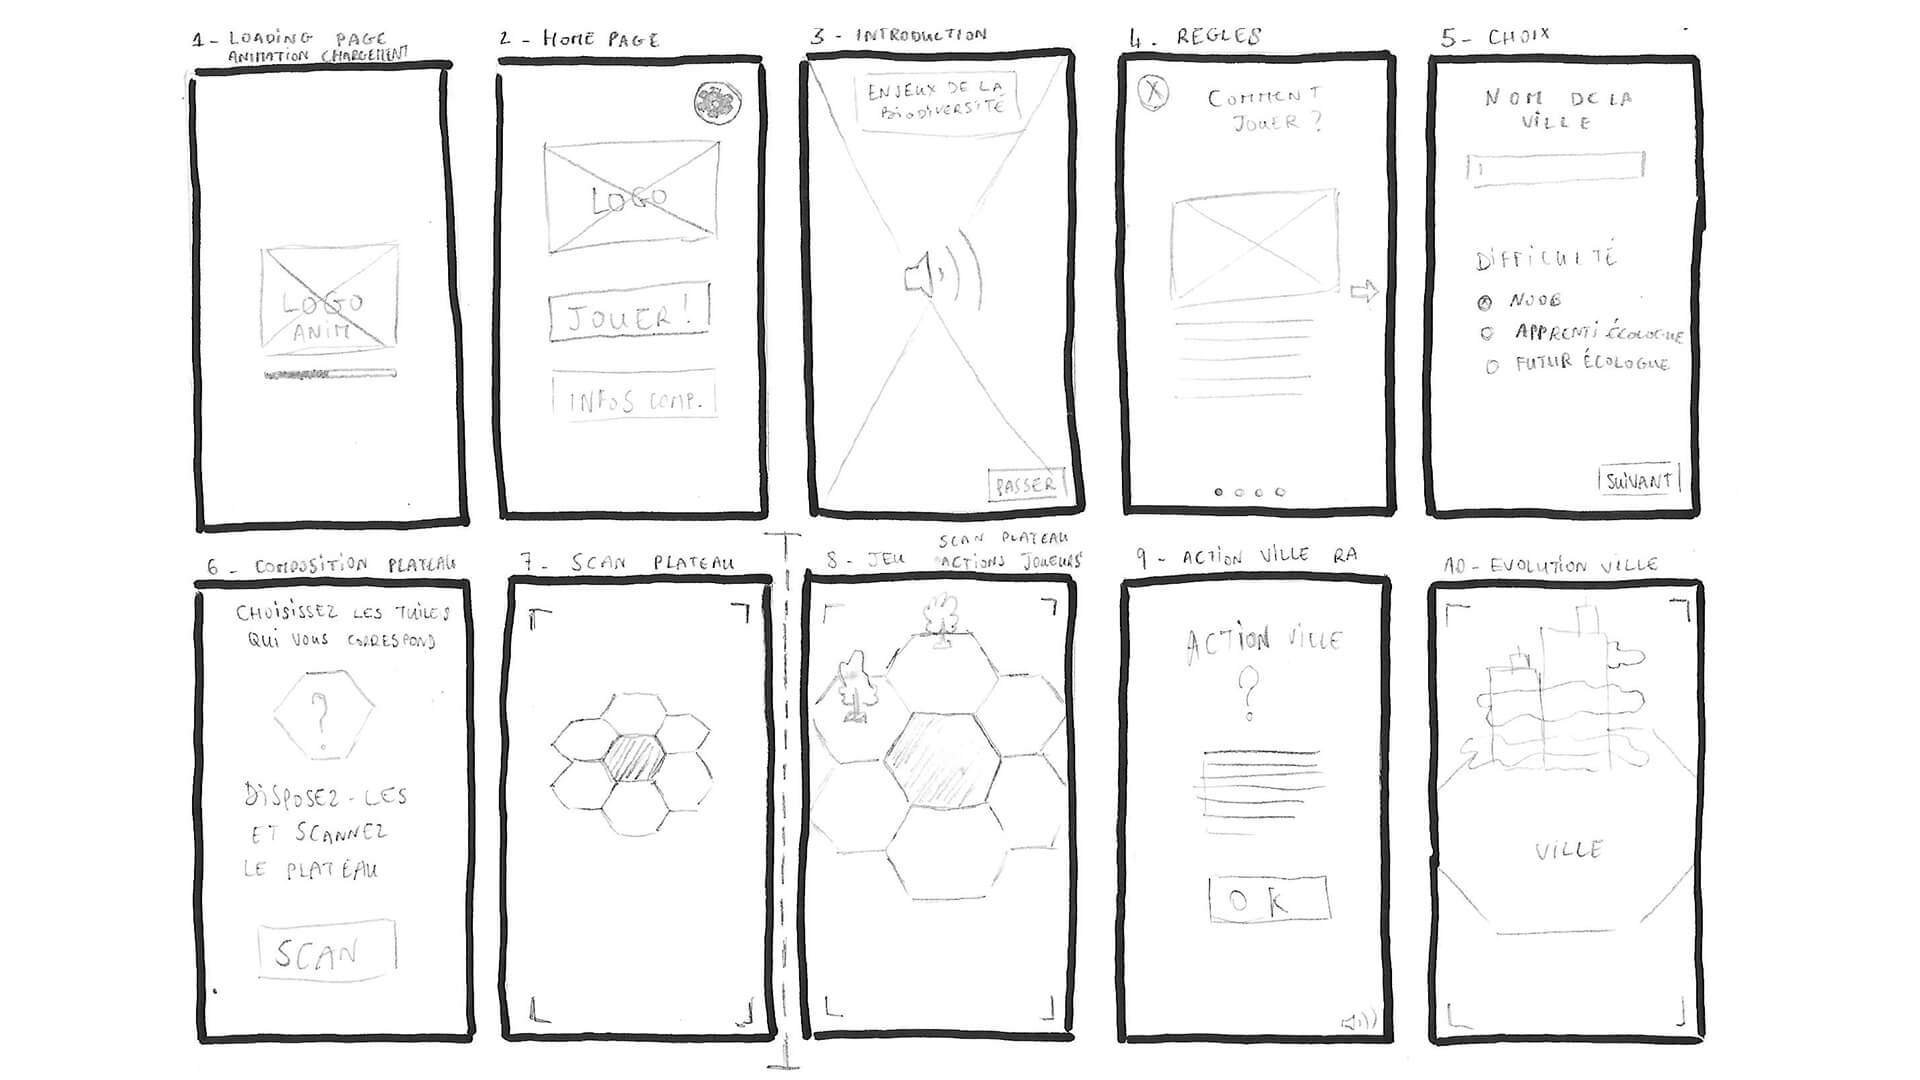 1 - LOADING PAGE
ANIMATION CHARGEMENT
LOGO
ANIM
2 - HOME PAGE
LOGO
JOUER !
INFOS COMP.
3 - INTRODUCTION
ENJEUX DE LA
BIODIVERSITÉ
PASSER
4 - REGLES
X
COMMENT
JOUER ?
5 - CHOIX
NOM DE LA
VILLE
DIFFICULTÉ
NOOB
APPRENTI ÉCOLOGUE
FUTUR ÉCOLOGUE
SUIVANT
6 - COMPOSITION PLATEAU
CHOISISSEZ LES TUILES
QUI VOUS CORRESPOND
?
DISPOSEZ-LES
ET SCANNEZ
LE PLATEAU
SCAN
7 - SCAN PLATEAU
8 - JEU
SCAN PLATEAU
ACTIONS JOUEURS
9 - ACTION VILLE RA
ACTION VILLE
?
OK
10 - EVOLUTION VILLE
VILLE